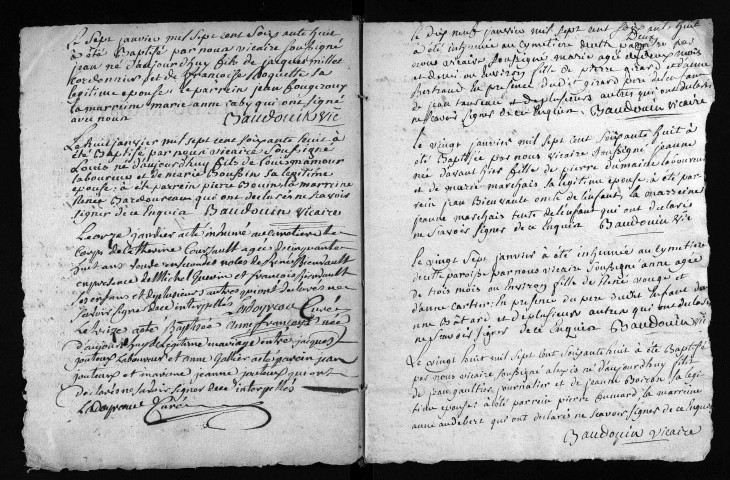 Le sept janvier mil sept cent soixante huit
à été Baptisé par nous vicaire soussigné
jean né d'aujourd'huy fils de jacques millet
cordonnier et de francoise loquette sa
legitime epouse le parrein jean fougeroux
la marreine marie anne caby qui ont signé
avec nous Baudouin vic
Le huit janvier mil sept cent soixante huit à
été Baptisé par nous vicaire soussigné
Louis né d'aujourd'huy fils de Louis mamour
laboureur et de marie Boussin sa legitime
epouse à été parrein pierre Bouin la marreine
Renée Bardoureau qui ont declarés ne scavoir
signer de ce Enquis Baudouin vicaire
Le onze janvier a eté inhumé au cimetiere le
corps de Catherine Coursault agée de cinquante
huit ans veuve en secondes notes de René Bienvault
en presence de Michel Guerin et francois Bienvault
ses enfans et de plusieurs autres qui ont declarés ne
scavoir signer de ce interpellés Ladoyreau Curé
Le treize a eté Baptisée anne françoise née
d'aujourd'huy de legitime mariage d'entre jacques
jouteux Laboureur et anne Gallier a eté parein jean
jouteux et mareine jeanne jouteux qui ont
declarés ne scavoir signer de ce interpellés
Curé
Le dix neuf janvier mil sept cent soixante huit
à été inhumée au cymetiere de cette paroisse par
nous vicaire soussigné marie agée de deux mois
et demi ou environ fille de pierre girard et de jeanne
Bertrand la presence dudit girard pere de l'enfant
de jean taureau et de plusieurs autres qui ont declarés
ne scavoir signer de ce Enquis Baudouin vicaire
Le vingt janvier mil sept cent soixante huit à
été Baptisée par nous vicaire soussigné jeanne
née d'avant hier fille de pierre dumaine laboureur
et de marie marchais sa legitime epouse à été par-
rein jean Bienvault oncle de l'enfant, la marreine
jeanne marchais tante de l'enfant qui ont declarés
ne scavoir signer de ce Enquis Baudouin vic
Le vingt sept janvier à été inhumée au cymetiere
de cette paroisse par nous vicaire soussigné anne agée
de trois mois ou environ fille de René rouget et
d'anne Cartier la presence du pere dudit Enfant d'an-
ne Bâtard et de plusieurs autres qui ont declarés
ne scavoir signer de ce Enquis Baudouin vic
Le vingt huit mil sept cent soixante huit à été Baptisé
par nous vicaire soussigné alexis né d'aujourd'huy fils
de jean gaultier journalier et de jeanne Boizon sa legi-
time epouse à été parrein pierre Guimard la marreine
anne audebert qui ont declarés ne scavoir signer de ce Enquis
Baudouin vicaire